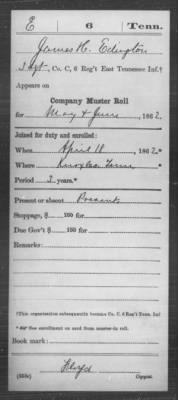 E 6 Tenn.
James H. Edington
Sgt., Co. C, 6 Reg't East Tennessee Inf.†
Appears on
Company Muster Roll
for May & June, 1862.
Joined for duty and enrolled:
When April 18, 1862*
Where Knoxlea Tenn
Period 3 years.*
Present or absent Present
Stoppage, $ 100 for
Due Gov't $ 100 for
Remarks:
†This organization subsequently became Co. C, 6 Reg't Tenn. Inf
* See enrollment on card from muster-in roll.
Book mark:
Floyd
Copyist.